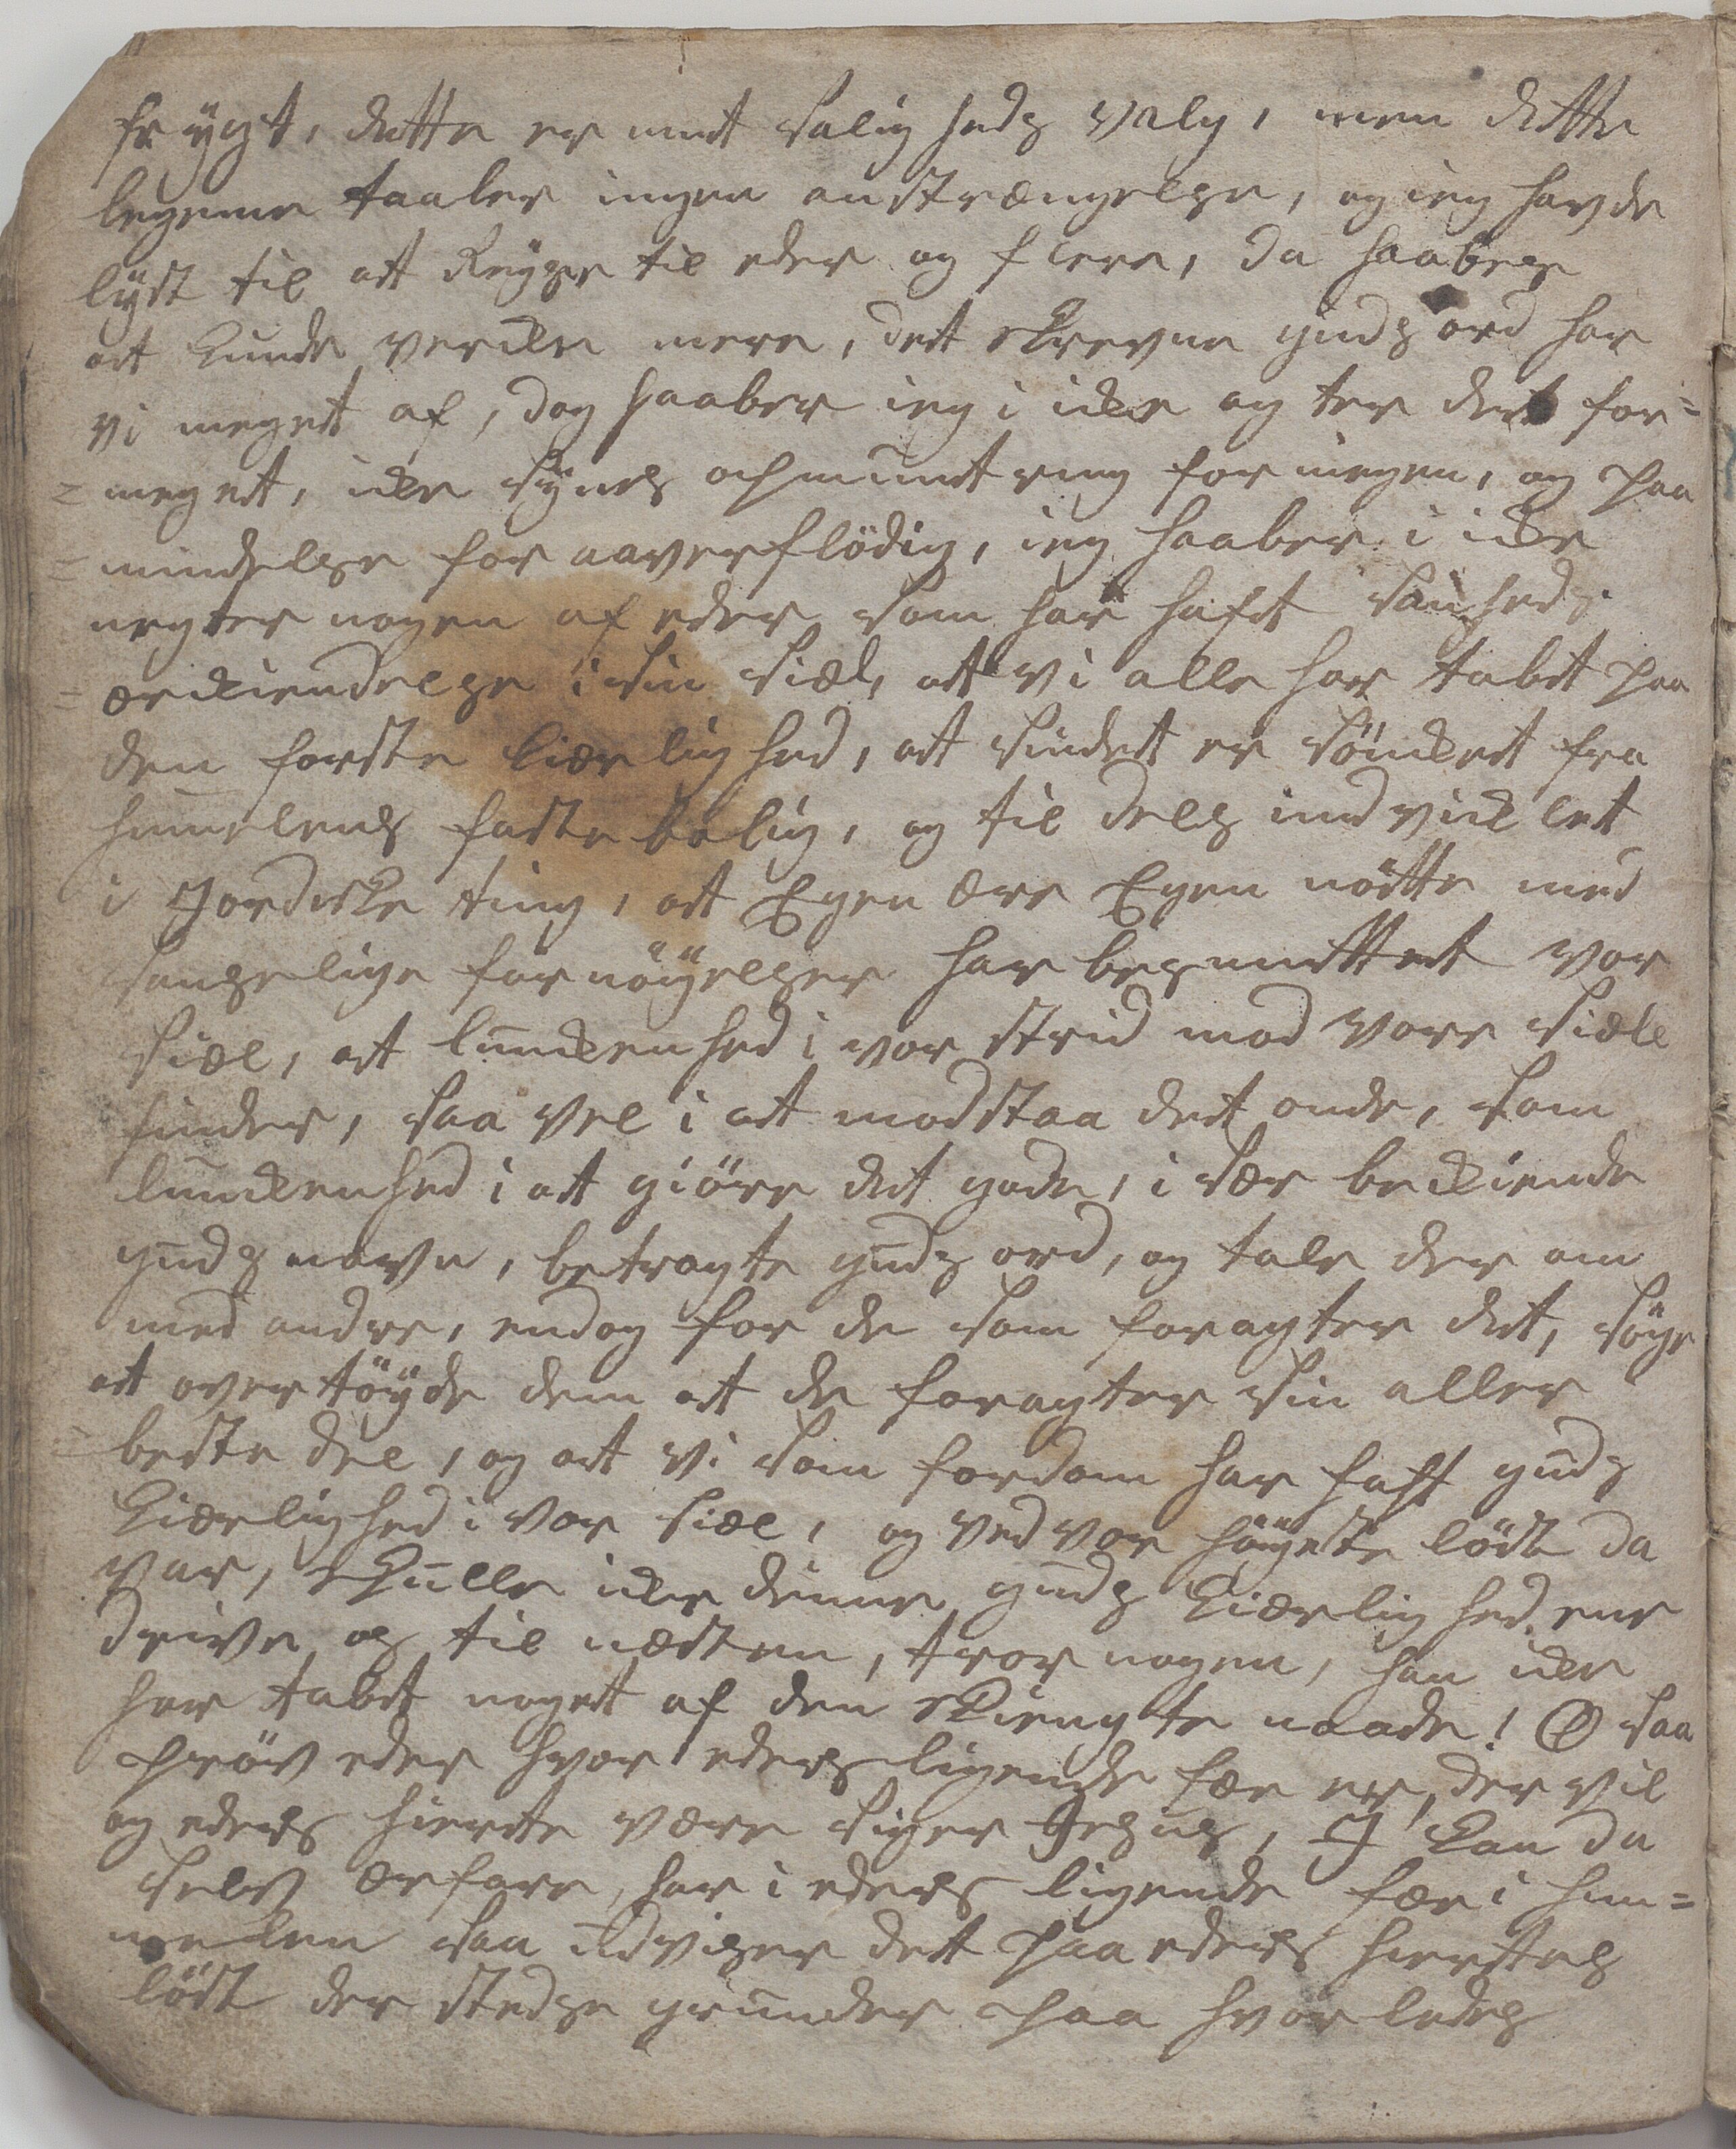 frygt, dette er mit salig heds valg, men dette
legeme taaler ingen anstrængelse, og ieg havde
lyst til at Reyse til eder og flere, da haabes
at kunde vercke mere, det skrevne gudz ord har
vi meget af, dog haaber ieg i icke agter det for=
=meget, icke synes opmuntring for megen, og paa
=mindelse for aaverflödig, ieg haaber i icke
negter nogen af eder som har haft sanheds
=ærckiendelse i sin siæl, at vi alle har tabt paa
den forste kiærlighed, at sindet er söncket fra
himelens faste bolig, og til dels ind vicklet
i Jordiske ting, at Egen ære Egen nötte med
sanselige fornöyelser har besmittet vor
siæl, at lunckenhed i vor strid mod vore siæle
finder, saa vel i at modstaa det onde, som
lunckenhed i at giöre det gode, i sær beckiende
gudz navn, betragte gudz ord, og tale der om
med andre, endog for de som foragter det, söge
at overtöyde dem at de foragter sin aller
=beste del, og at vi som fordom har haft gudz
kiærlighed i vor siæl, og ved vor höyeste löst da
var, skulle icke denne gudz kiærlighed ene
drive os til næsten, tror nogen, han icke
har tabt noget af den skiengte naade! O saa
pröv eder hvor eders ligende fæe er, der vil
og eders hierte være siger Jesus, I kan da
selv ærfare, har i eders ligende fæe i him=
melen saa udviser det paa eders hiertes
löst der stedse grunder paa hvorledes